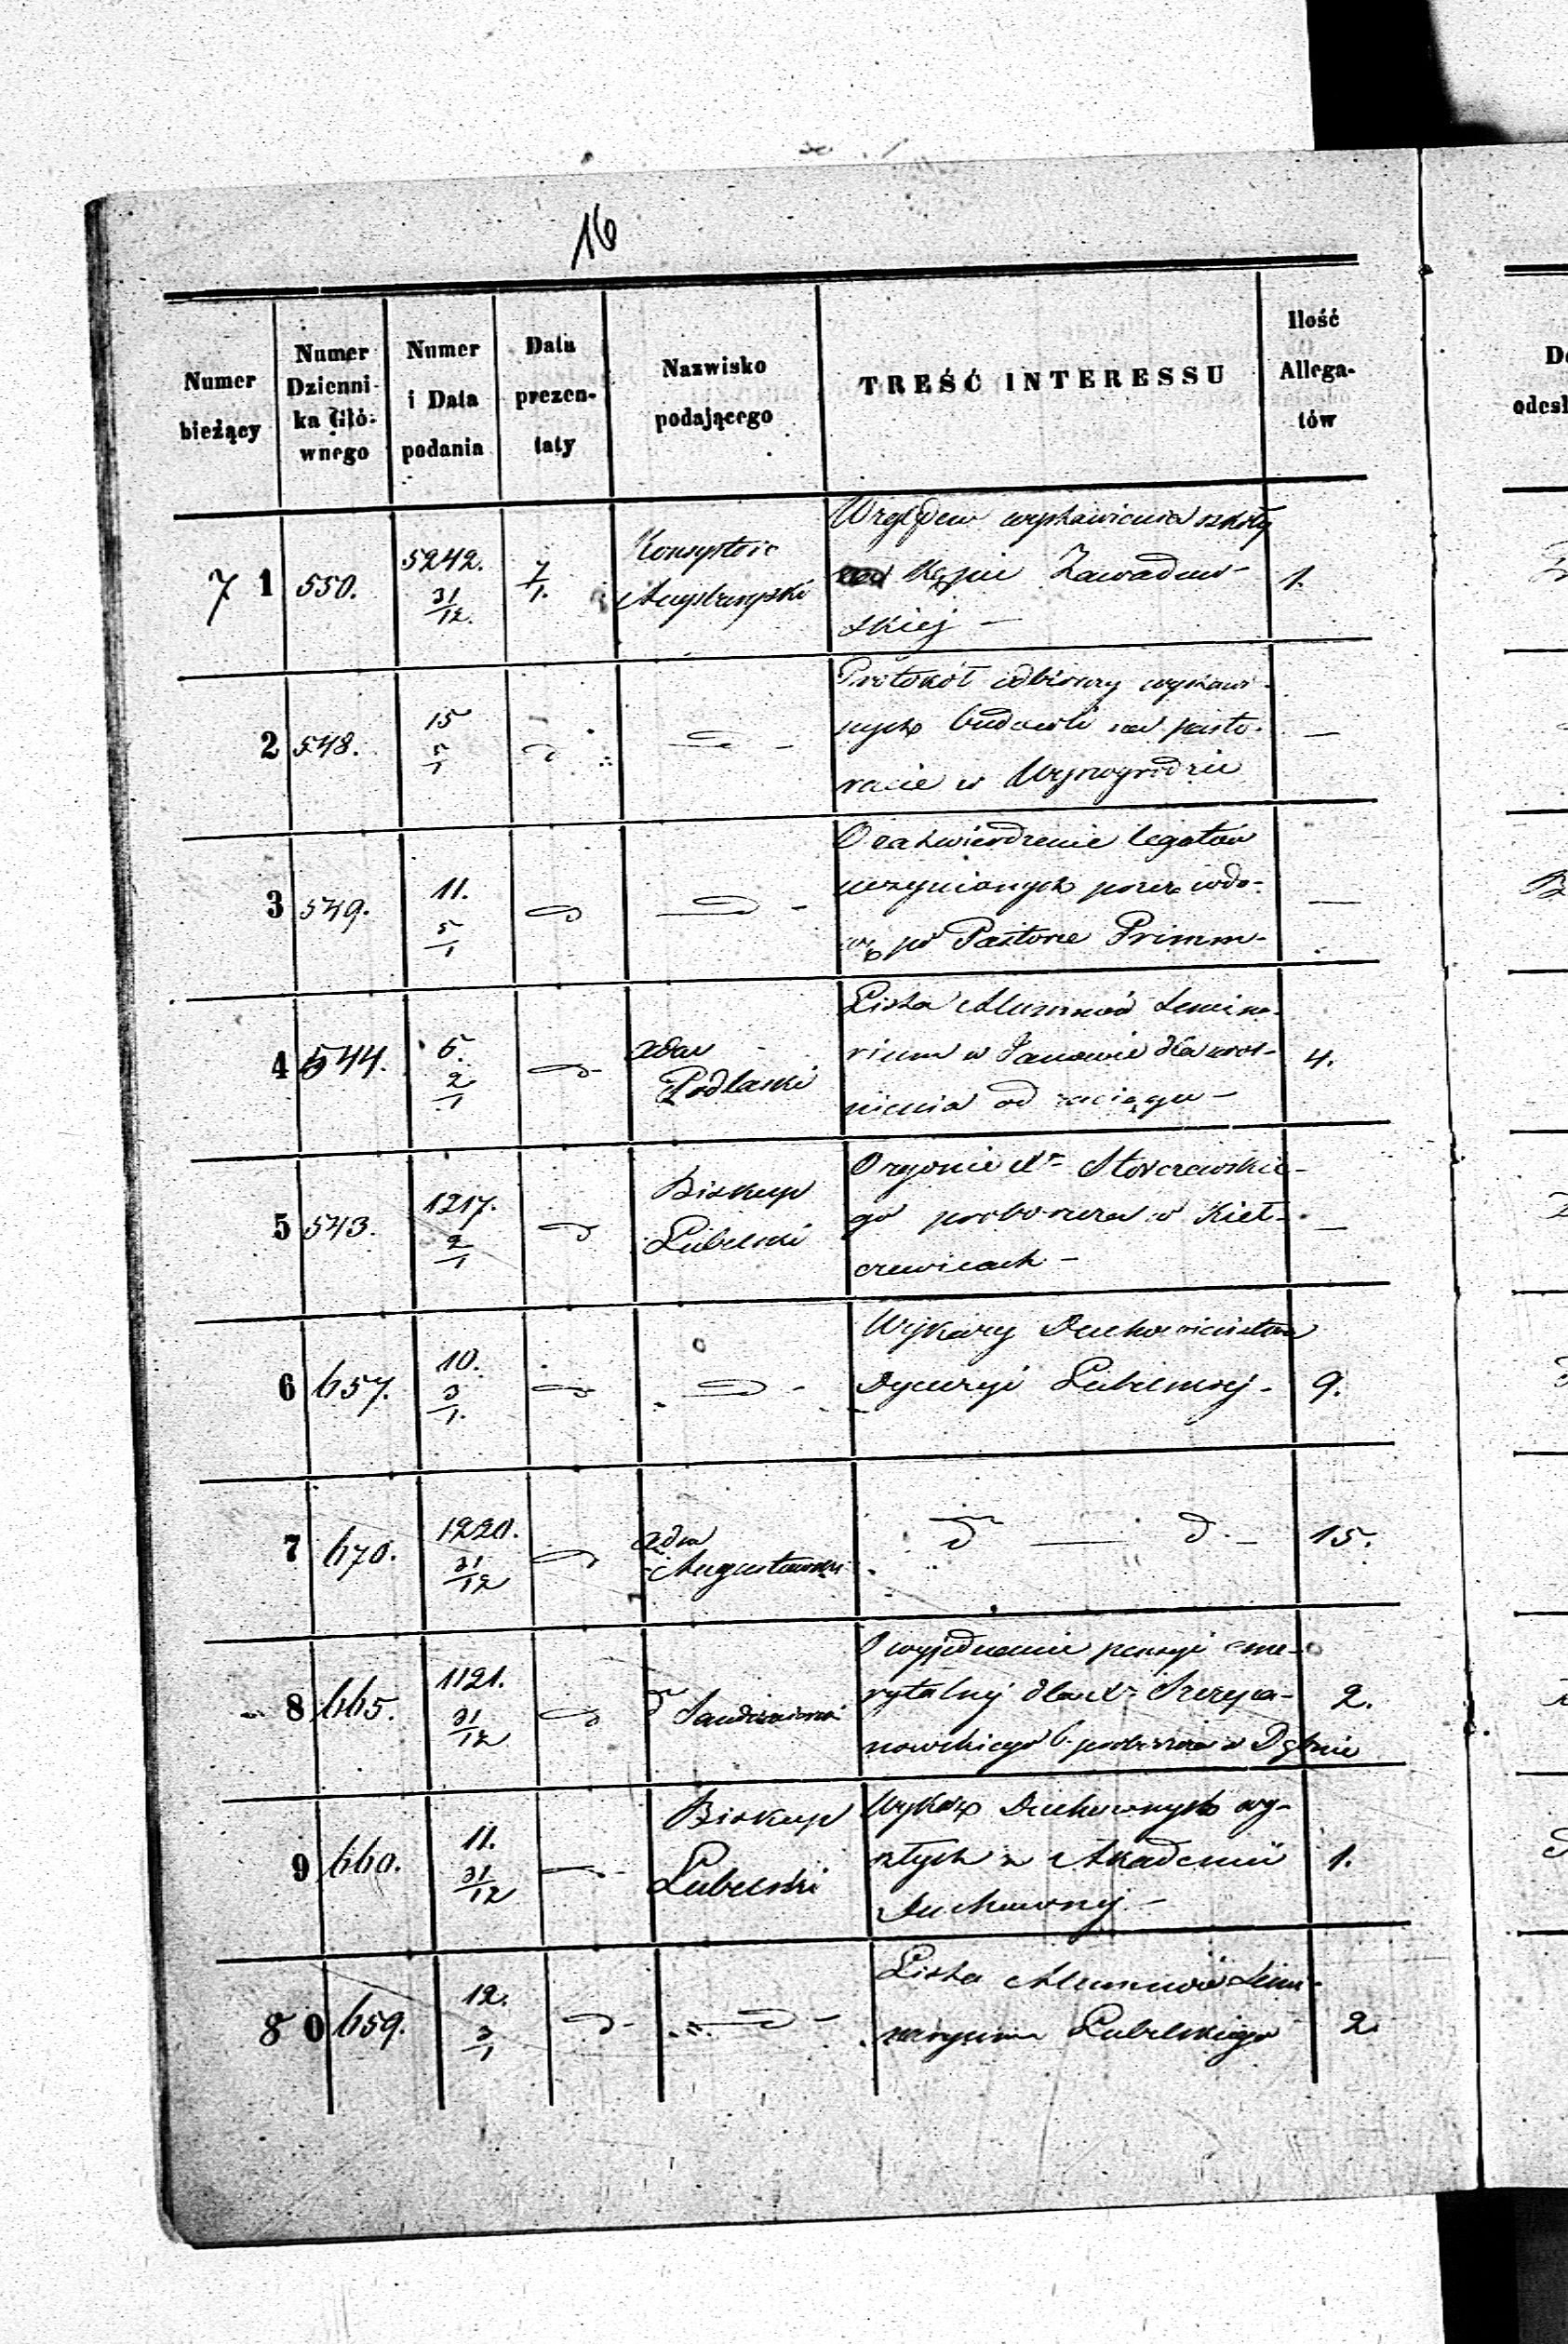 16
Numer bieżący
Numer Dzienni- ka Głó- wnego
Numer i Data podania
Data prezen- taty
Nazwisko podającego
TREŚĆ INTERESSU
Ilość Allega- tów
7 1 550. 5242. 31/12. 7/1. Konsystorz
Względem wystawienia szkoły
Kępie Zawadow-
skiej - 1.
2 548. 15 5/1 d —
Protokół odbiorczy
budowli na pasto-
racie w Wyszogrodzie —
3 549. 11. 5/1 d —
O zatwierdzenie legatów
uczynionych przez wdo-
wę po Pastorze Primm- —
4 544. 6. 2/1 d Adm Podlaski
Lista Alumnów Semina-
rium w Janowie dla uwol-
nienia od zaciągu - 4.
5 543. 1217. 2/1 d Biskup Lubelski
O zgonie Xa Stoczewskie-
go proboszcza w Kieł-
czewicach - —
6 657. 10. 3/1. d —
Wykazy Duchowieństwa
Dyecezyi Lubelskiej - 9.
7 670. 1220. 31/12 d Adm Augustowski
d — d - 15.
8 665. 1121. 31/12 d d Sandomierski
O wyjednanie pensyi eme-
rytalnej dla Xa Szczepa-
nowskiego b. proboszcza w 2.
9 660. 11. 31/12 d Biskup Lubelski
Wykaz Duchownych wy-
szłych z Akademii
Duchownej - 1.
8 0 659. 12. 3/1 d —
Lista Alumnów Semi-
naryum Lubelskiego 2.